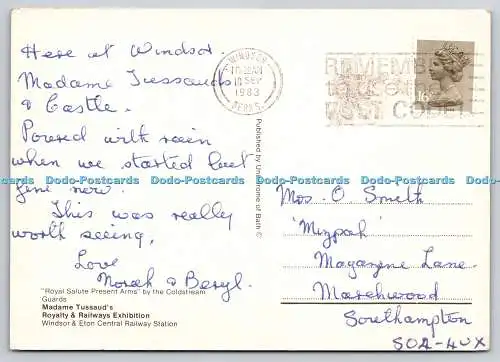 Here at Windsor.
Madame Tussauds
& Castle.
Poured with rain
when we started but
fine now.
This was really
worth seeing,
Love
Norah & Beryl.
"Royal Salute Present Arms" by the Coldstream
Guards
Madame Tussaud's
Royalty & Railways Exhibition
Windsor & Eton Central Railway Station
Published by Unichrome of Bath ©
WINDSOR
10 SEP
1983
BERKS
REMEMBER
to use the
POST CODE
16
Mrs. O Smith
'Mizpah'
Magazine Lane
Marchwood
Southampton
SO2-4UX
Dodo-Postcards Dodo-Postcards Dodo-Postcards Dodo-Postcards Dodo-Postcards